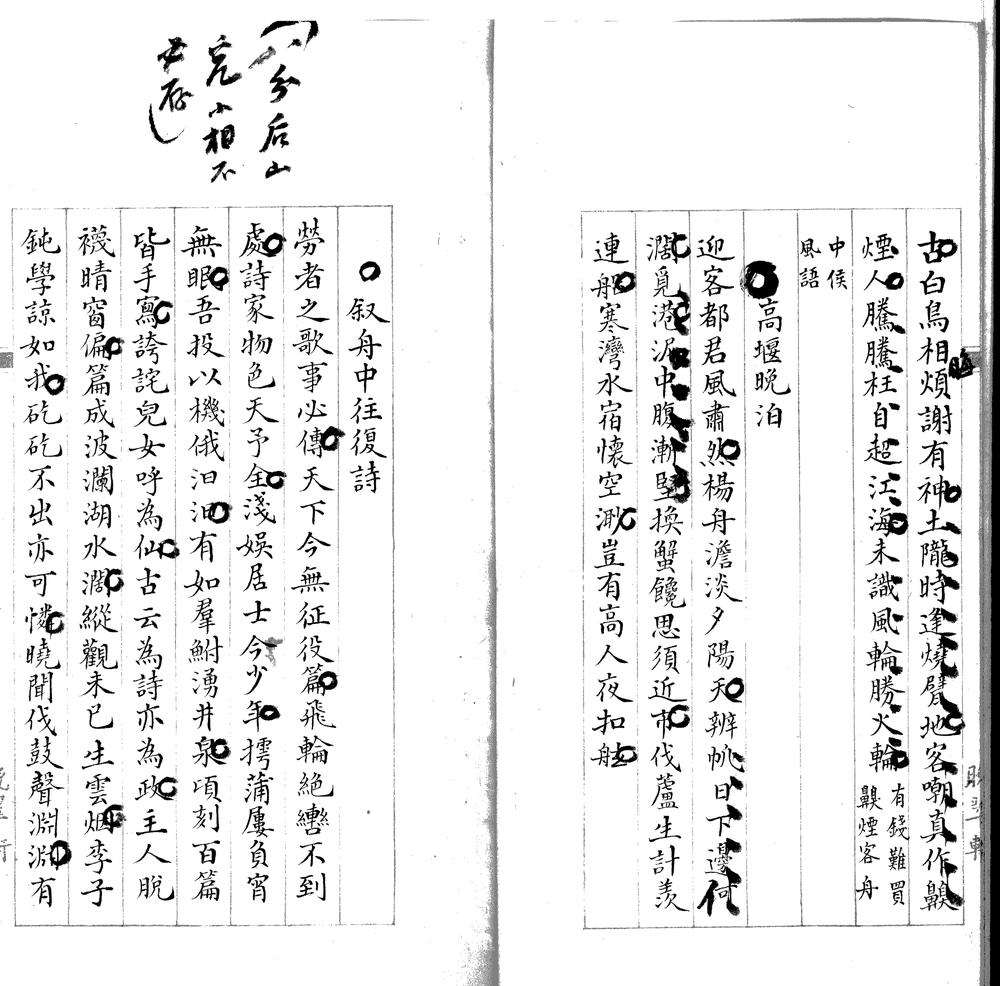 古白鳥相煩謝有神土隴時逢燒臂地客嘲真作齅
煙人騰騰枉自超江海未識風輪勝火輪
有錢難買
齅煙客舟
中侯
風語
高堰晚泊
迎客都君風肅然楊舟澹淡夕陽天辨帆日下邊何
濶覓港泥中腹漸堅換蟹饞思須近市伐蘆生計羨
連船寒灣水宿懷空渺豈有高人夜扣舷
八分后山
完小相不
必存
叙舟中往復詩
勞者之歌事必傳天下今無征役篇飛輪絶轡不到
處詩家物色天予全淺娛居士今少年摴蒲屢負宵
無眠吾投以機俄汩汩有如羣鮒湧井泉頃刻百篇
皆手寫誇詫兒女呼為仙古云為詩亦為政主人脫
襪晴窗偏篇成波瀾湖水濶縱觀未已生雲烟李子
鈍學諒如我矻矻不出亦可憐曉聞伐鼓聲淵淵有